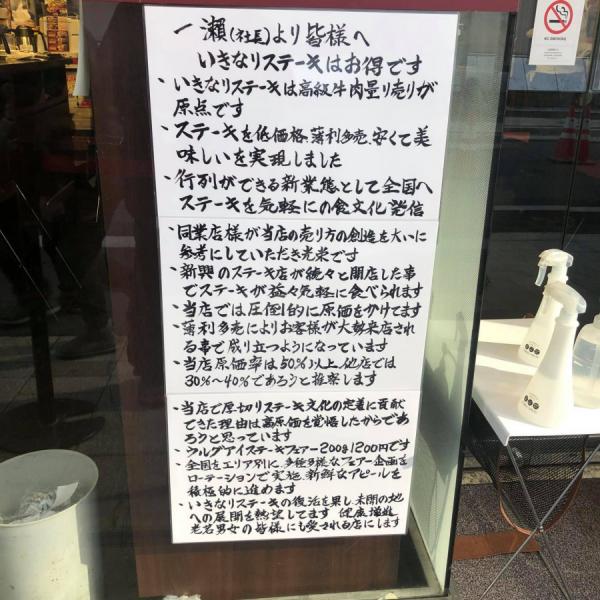 一瀬(社長)より皆様へ
いきなりステーキはお得です
、いきなりステーキは高級牛肉量り売りが
原点です
、ステーキを低価格、薄利多売、安くて美
味しいを実現しました
、行列ができる新業態として全国へ
ステーキを気軽にの食文化発信
、同業店様が当店の売り方の創造を大いに
参考にしていただき光栄です
、新興のステーキ店が続々と開店した事
でステーキが益々気軽に食べられます
、当店では圧倒的に原価をかけてます
、薄利多売によりお客様が大勢来店され
る事で成り立つようになっています
、当店原価率は50%以上、他店では
30%〜40%であろうと推察します
、当店で厚切りステーキ文化の定着に貢献
できた理由は高原価を覚悟したからであ
ろうと思っています
、ウルグアイステーキフェアー200g1200円です
、全国をエリア別に、多種多様なフェアー企画を
ローテーションで実施、新鮮なアピールを
積極的に進めます
、いきなりステーキの復活を果し、未開の地
への展開を熱望してます 健康増進
老若男女の皆様にも愛される店にします